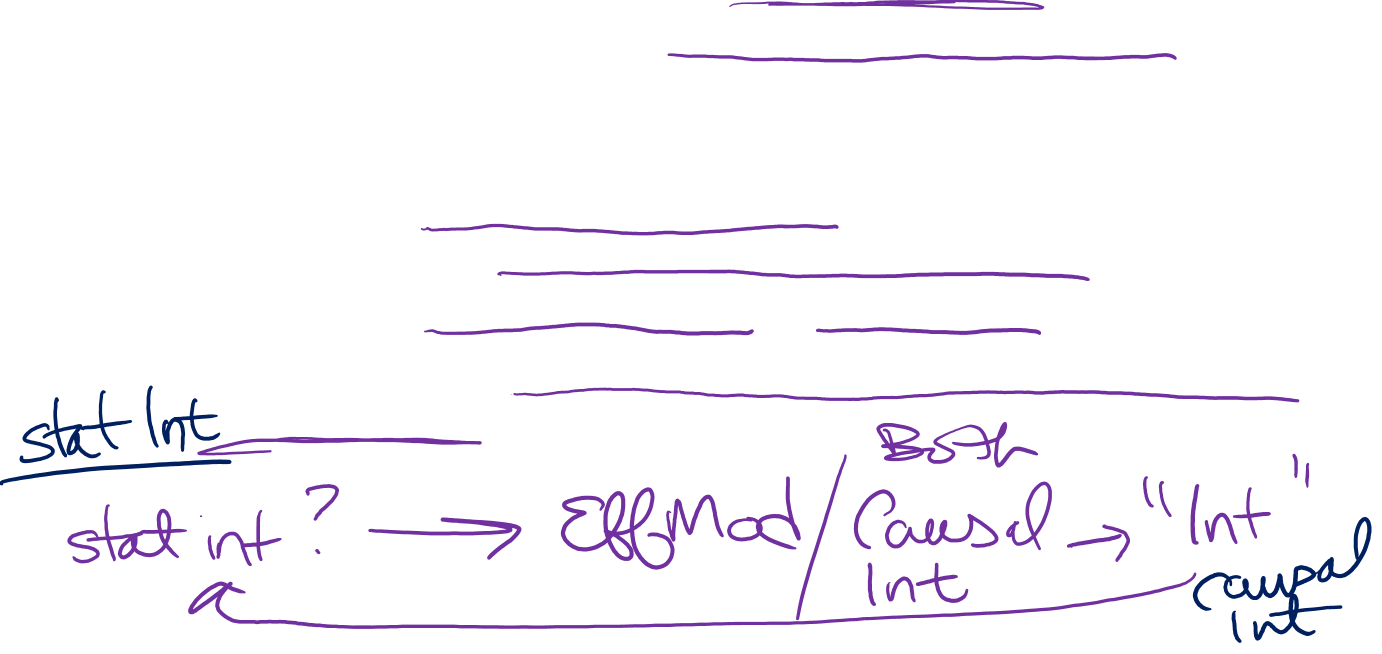 stat Int
Both
stat int? → EffMod / Causal Int → "Int"
causal Int